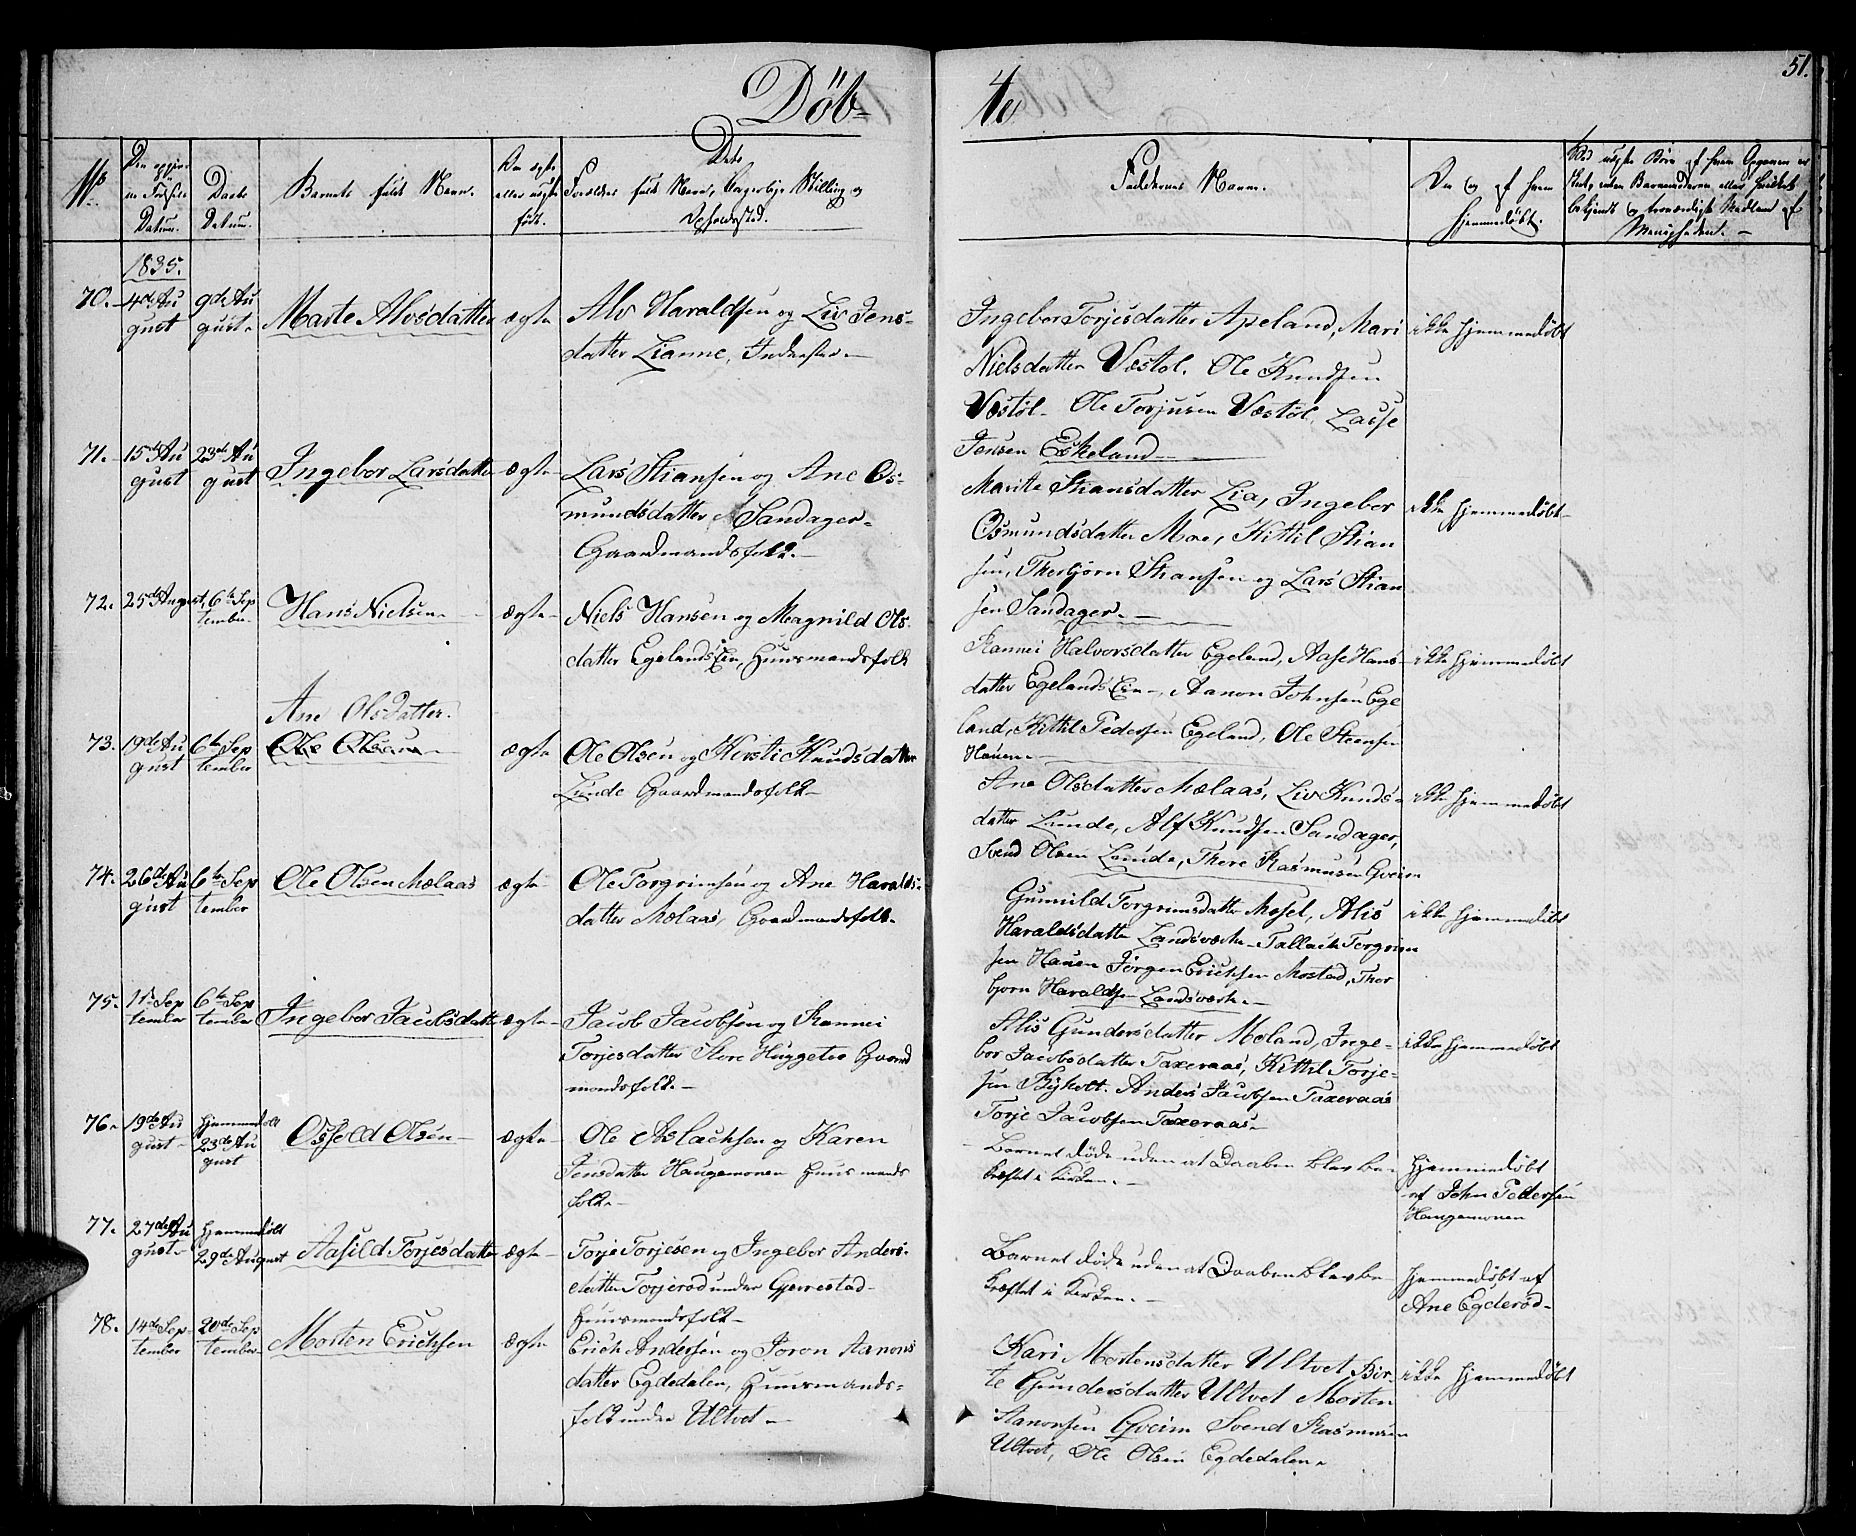 Döb-
te
51.
No
Den opgivne Fødsels Datum.
Daabs Datum.
Barnets fulde Navn.
Om ægte eller uægte født.
Dets Forældres fulde Navn, borgerlige Stilling og Opholdssted.
Faddernes Navne.
Om og af hvem hjemmedøbt.
1835.
70. 4de August 9de August. Marte Alvsdatter ægte Alv Haraldsen og Liv Jens-
datter Lianne, Inderster.
Ingebor Torjesdatter Apeland, Mari ikke hjemmedøbt
Nielsdatter Væstøl. Ole Knudsen
Væstøl. Ole Torjusen Væstøl, Lasse
Jensen Eskeland
71. 15de August 23de August Ingebor Larsdatter ægte Lars Stiansen og Ane Os-
mundsdatter Sandager.
Gaardmandsfolk.
Marite Stiansdatter Lia, Ingebor ikke hjemmedøbt
Osmundsdatter Moe, Kittil Stian
sen, Thorbjørn Stiansen og Lars Stian
sen Sandager.
72. 25de August, 6te September Hans Nielsen ægte Niels Hansen og Magnild Ols-
datter Egelands Eie, Huusmandsfolk
Rannei Halvorsdatter Egeland, Aase Hans- ikke hjemmedøbt
datter Egelands Eie, Aanon Johnsen Ege
land, Kittil Pedersen Egeland, Ole Steensen
Hauen.
Ane Olsdatter.
73. 19de August 6te September Ole Olsen ægte Ole Olsen og Kersti Knudsdatter
Lunde Gaardmandsfolk
Ane Olsdatter Mælaas, Liv Knuds- ikke hjemmedøbt
datter Lunde, Alf Knudsen Sandager,
Svend Olsen Lunde, There Rasmusen Gveim
74. 26de August 6te September Ole Olsen Mælaas ægte Ole Torgrimsen og Ane Haralds-
datter Mælaas, Gaardmandsfolk.
Gunnild Torgrimsdatter Mosel, Alis ikke hjemmedøbt
Haraldsdatter Landsværk Tallack Torgrim
sen Hauen Jørgen Erichsen Mostad, Thor
bjørn Haraldsen Landsværk.
75. 1ste September 6te September Ingebor Jacobsdatter ægte Jacob Jacobsen og Rannei
Torjesdatter Store Huggeter Gaard
mandsfolk
Alis Gundersdatter Moland, Inge- ikke hjemmedøbt
bor Jacobsdatter Taxeraas, Kittil Torje-
sen Byholt. Anders Jacobsen Taxeraas
Torje Jacobsen Taxeraas.
76. 19de August Hjemmedøbt 23de August Osfold Olsen ægte Ole Aslachsen og Karen
Jensdatter Haugemonen Huusmands
folk
Barnet døde uden at Daaben blev be-
kræftet i Kirken.
Hjemmedøbt
af John Pedersen
Haugemonen
77. 27de August Hjemmedøbt 29de August Aasild Torjesdatter ægte Torje Torjesen og Ingebor Anders-
datter Torjerød under Gjerrestad
Huusmandsfolk
Barnet døde uden at Daaben blev be-
kræftet i Kirken.
Hjemmedøbt af
Ane Egderød
78. 14de September 20de September Morten Erichsen ægte Erich Andersen og Joron Aanons
datter Egdedalen, Huusmands-
folk under Ultvet
Kari Mortensdatter Ultvet Bir- ikke hjemmedøbt
te Gundersdatter Ultvet Morten
Aanonsen Gveim Svend Rasmusen
Ultvet, Ole Olsen Egdedalen.